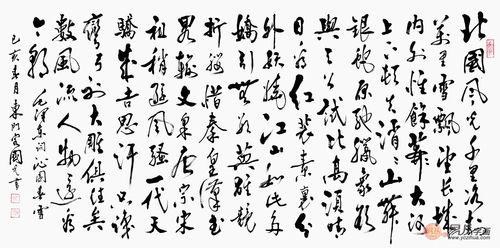 北國風光千里冰封
萬里雪飄望長城
內外惟餘莽莽大河
上下頓失滔滔山舞
銀蛇原馳蠟象欲
與天公試比高須晴
日看紅裝素裹分
外妖嬈江山如此多
嬌引無數英雄競
折腰惜秦皇漢武
略輸文采唐宗宋
祖稍遜風騷一代天
驕成吉思汗只識
彎弓射大雕俱往矣
數風流人物還看
今朝 毛澤東詞沁園春雪
己亥春月 國 書
www.yczihua.com